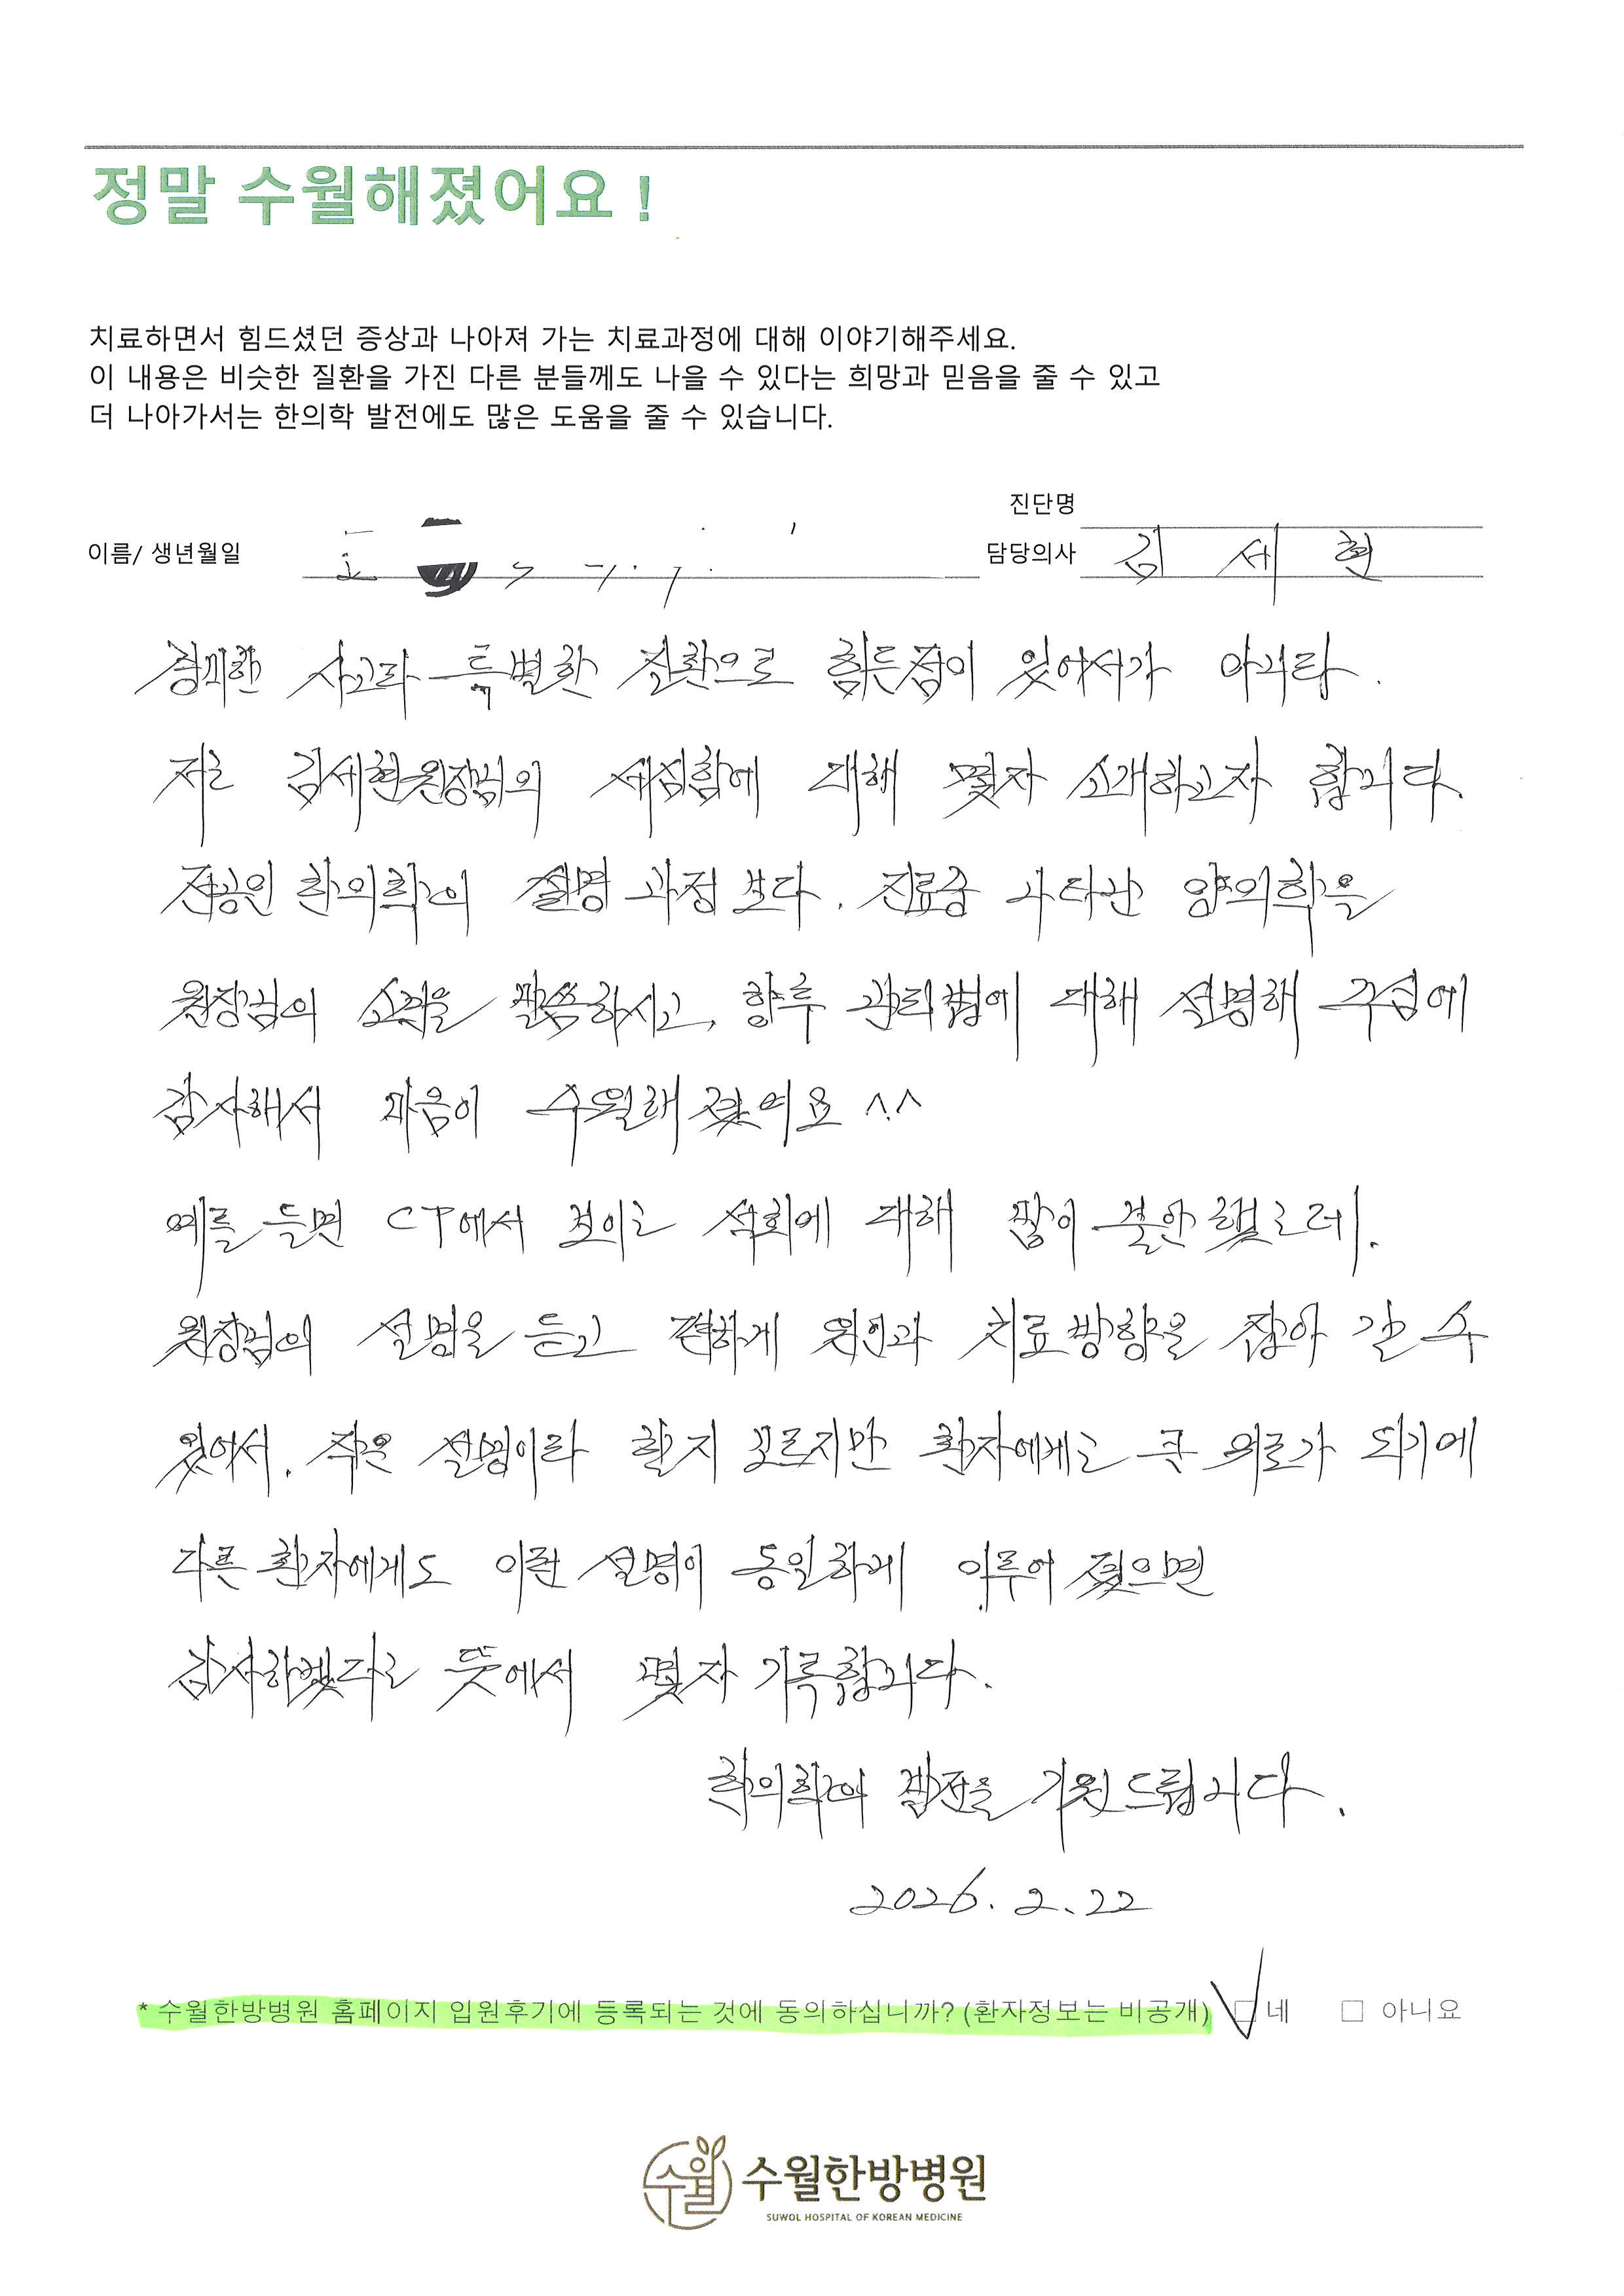 정말 수월해졌어요 !
치료하면서 힘드셨던 증상과 나아져 가는 치료과정에 대해 이야기해주세요.
이 내용은 비슷한 질환을 가진 다른 분들께도 나을 수 있다는 희망과 믿음을 줄 수 있고
더 나아가서는 한의학 발전에도 많은 도움을 줄 수 있습니다.
진단명
이름/ 생년월일
담당의사 김세현
경미한 사고라 특별한 질환으로 힘든점이 있어서가 아니라.
저는 김세현원장님의 세심함에 대해 몇자 소개하고자 합니다.
전공인 한의학의 설명 과정 보다. 진료중 나타난 양의학을
원장님의 소견을 말씀하시고, 향후 관리법에 대해 설명해 주심에
감사해서 마음이 수월해 졌어요 ^^
예를 들면 CT에서 보이는 석회에 대해 많이 불안했는데.
원장님의 설명을 듣고 편하게 원인과 치료방향을 잡아 갈 수
있어서. 작은 설명이라 할지 모르지만 환자에게는 큰 위로가 되기에
다른 환자에게도 이런 설명이 동일하게 이루어 졌으면
감사하겠다는 뜻에서 몇자 기록합니다.
한의학의 발전을 기원드립니다.
2026. 2. 22
* 수월한방병원 홈페이지 입원후기에 등록되는 것에 동의하십니까? (환자정보는 비공개) □ 네 □ 아니요
수월 수월한방병원
SUWOL HOSPITAL OF KOREAN MEDICINE